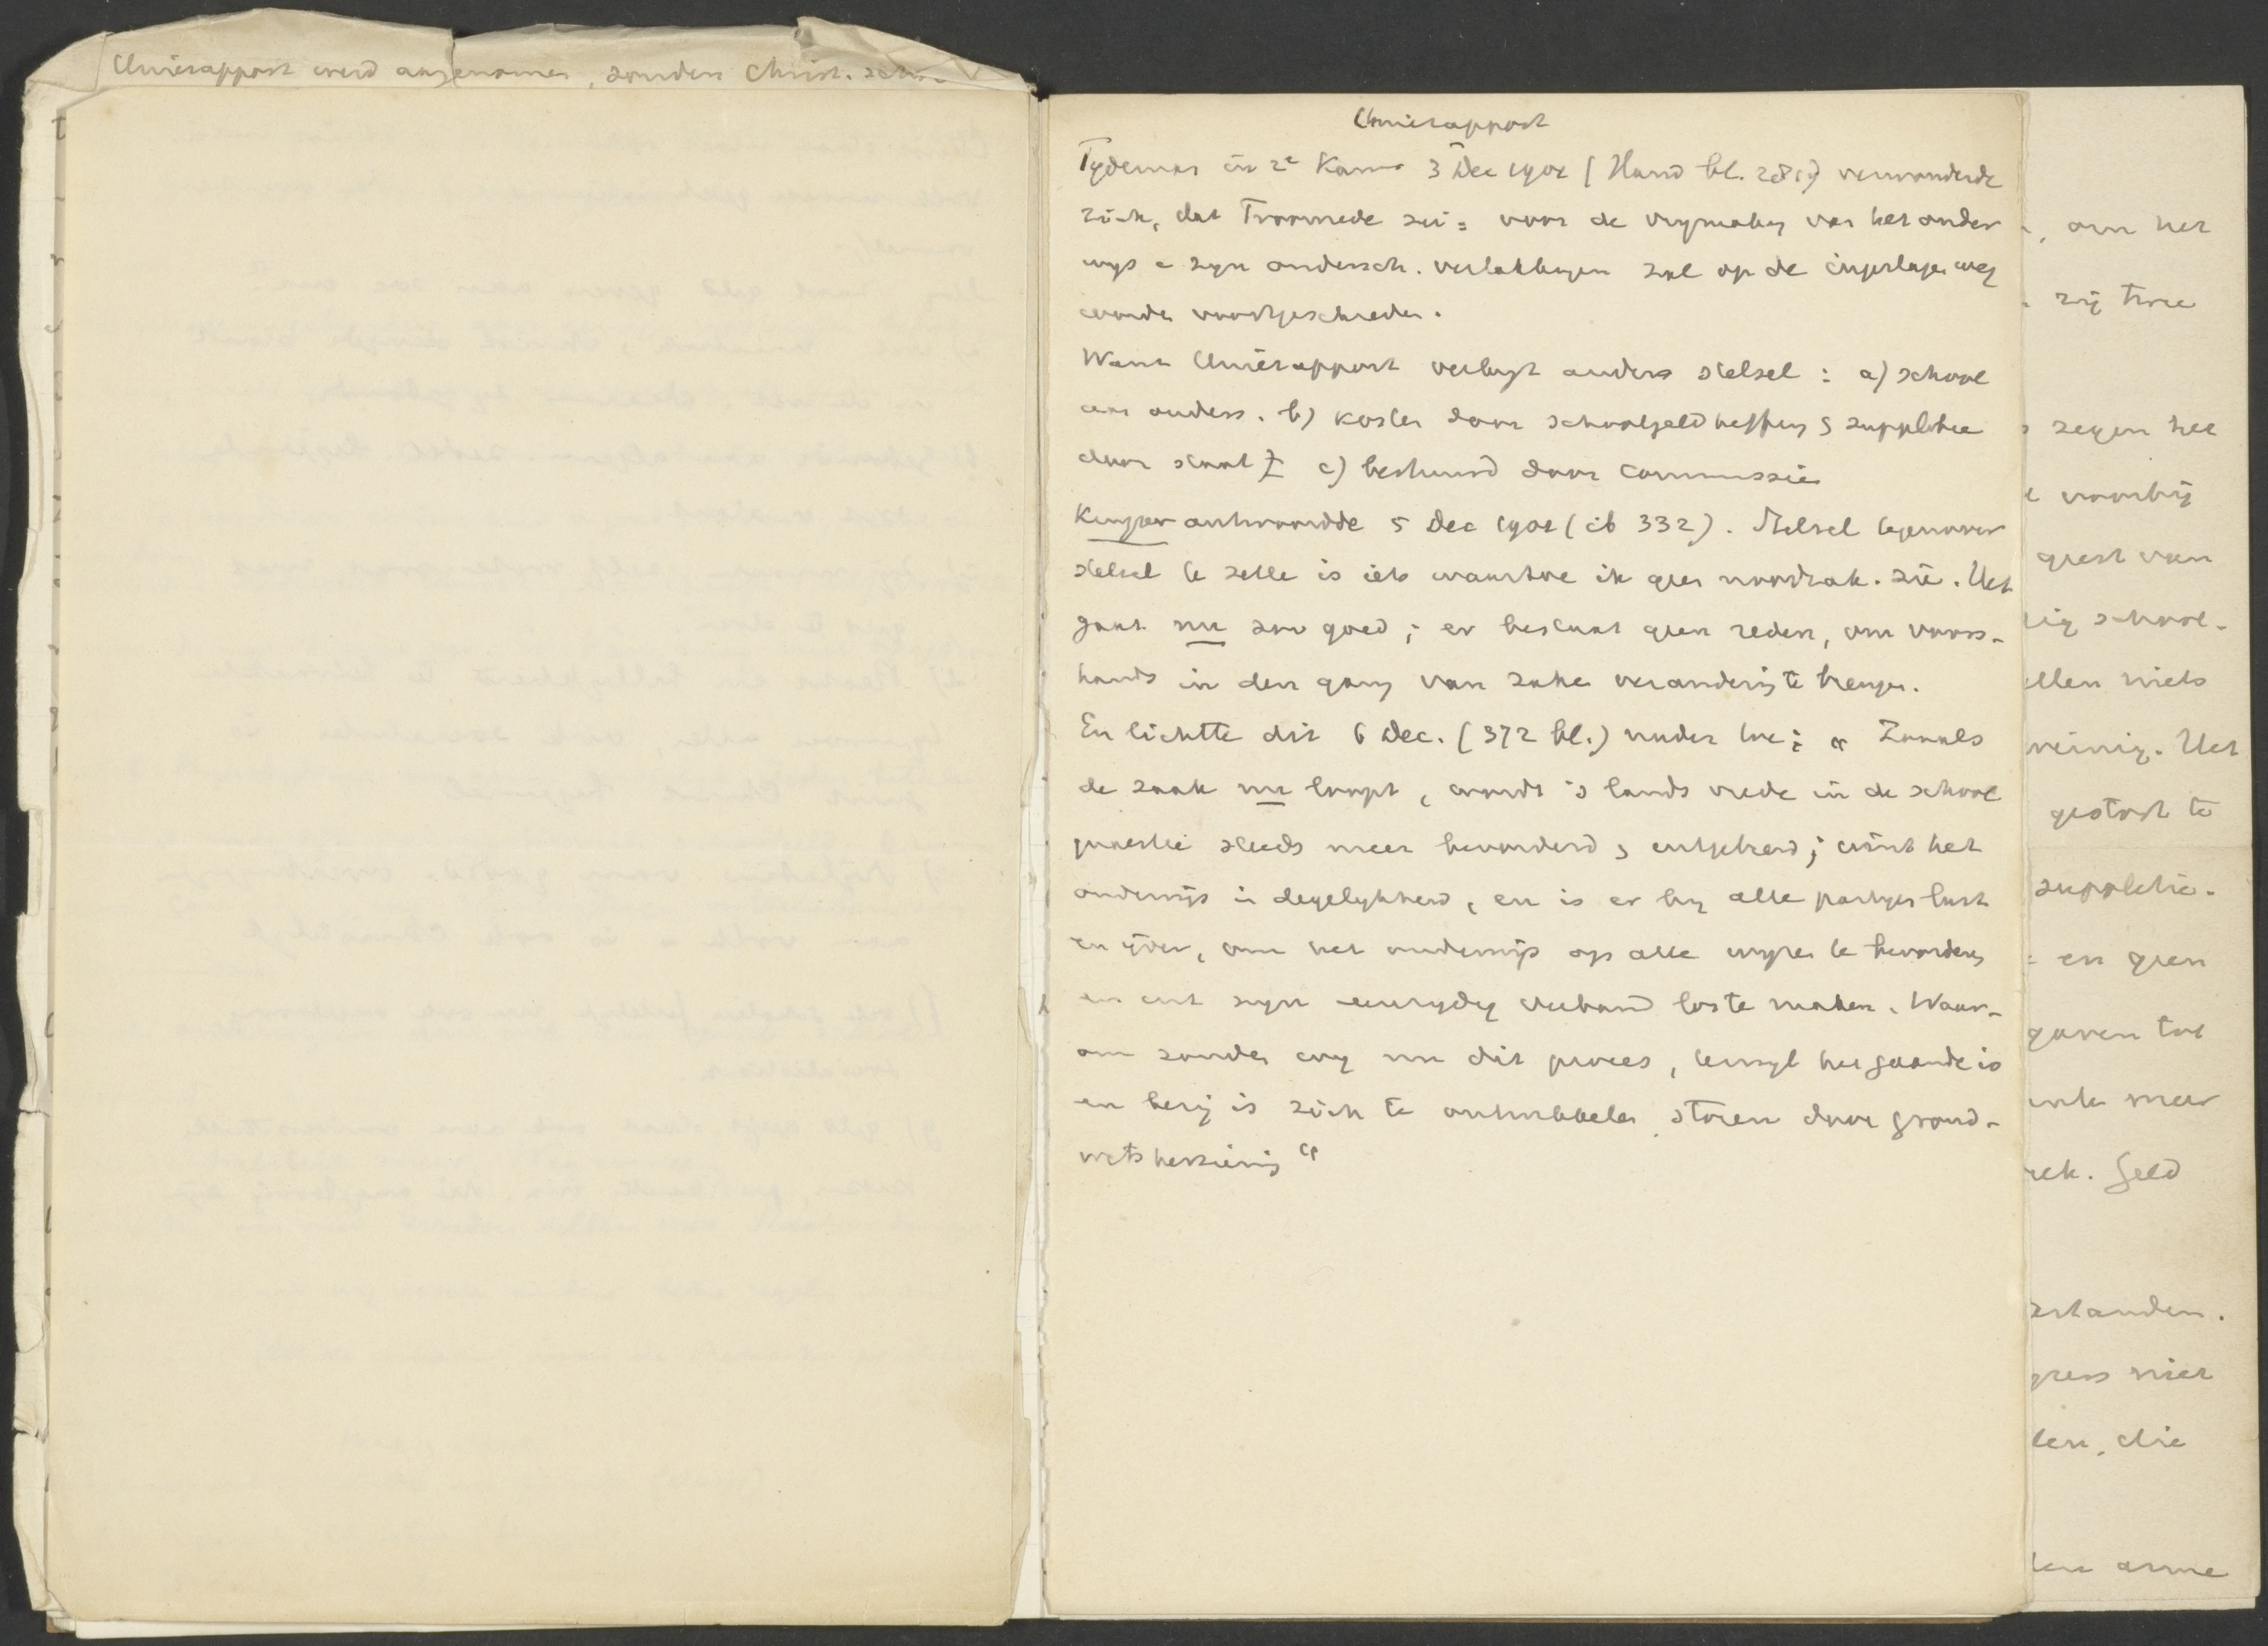 Unierapport werd aangenomen, zonder Christ.
Unierapport
Tydeman in 2e Kamer 3 Dec 1901 (Hand bl. 281) verwonderde
zich, dat Troonrede zei: voor de vrymaking van het onder
wys e zyn ondersch. vertakkingen zal op de ingeslagen weg
worden voortgeschreden.
Want Unierapport verlangt anders stelsel: a) school
aan ouders. b) kosten door schoolgeldheffing & suppletie
door staat c) bestuurd door commissie
Kuyper antwoordde 5 Dec 1901 (ib 332). Stelsel tegenover
stelsel te zetten is iets waartoe ik geen noodzak. zie. Het
gaat nu zoo goed; er bestaat geen reden, om voors-
hands in den gang van zaken verandering te brengen.
En lichtte dit 6 Dec. (372 bl.) nader toe: „Zooals
de zaak nu loopt, wordt 's lands vrede in de school
questie steeds meer bevorderd & uitgebreid; wint het
onderwijs in degelykheid, en is er by alle partyen lust
en ijver, om het onderwijs op alle wyzen te bevorderen
en uit zyn eenzydig verband los te maken. Waar-
om zouden wy nu dit proces, terwyl het gaande is
en bezig is zich te ontwikkelen, storen door grond-
wetsherziening"
, om het
zij twee
zegen het
voorbij
geest van
school-
ellen niets
weinig. Het
gestort te
suppletie.
en geen
gaven tot
meer
Geld
standen.
gress niet
len, die
arme